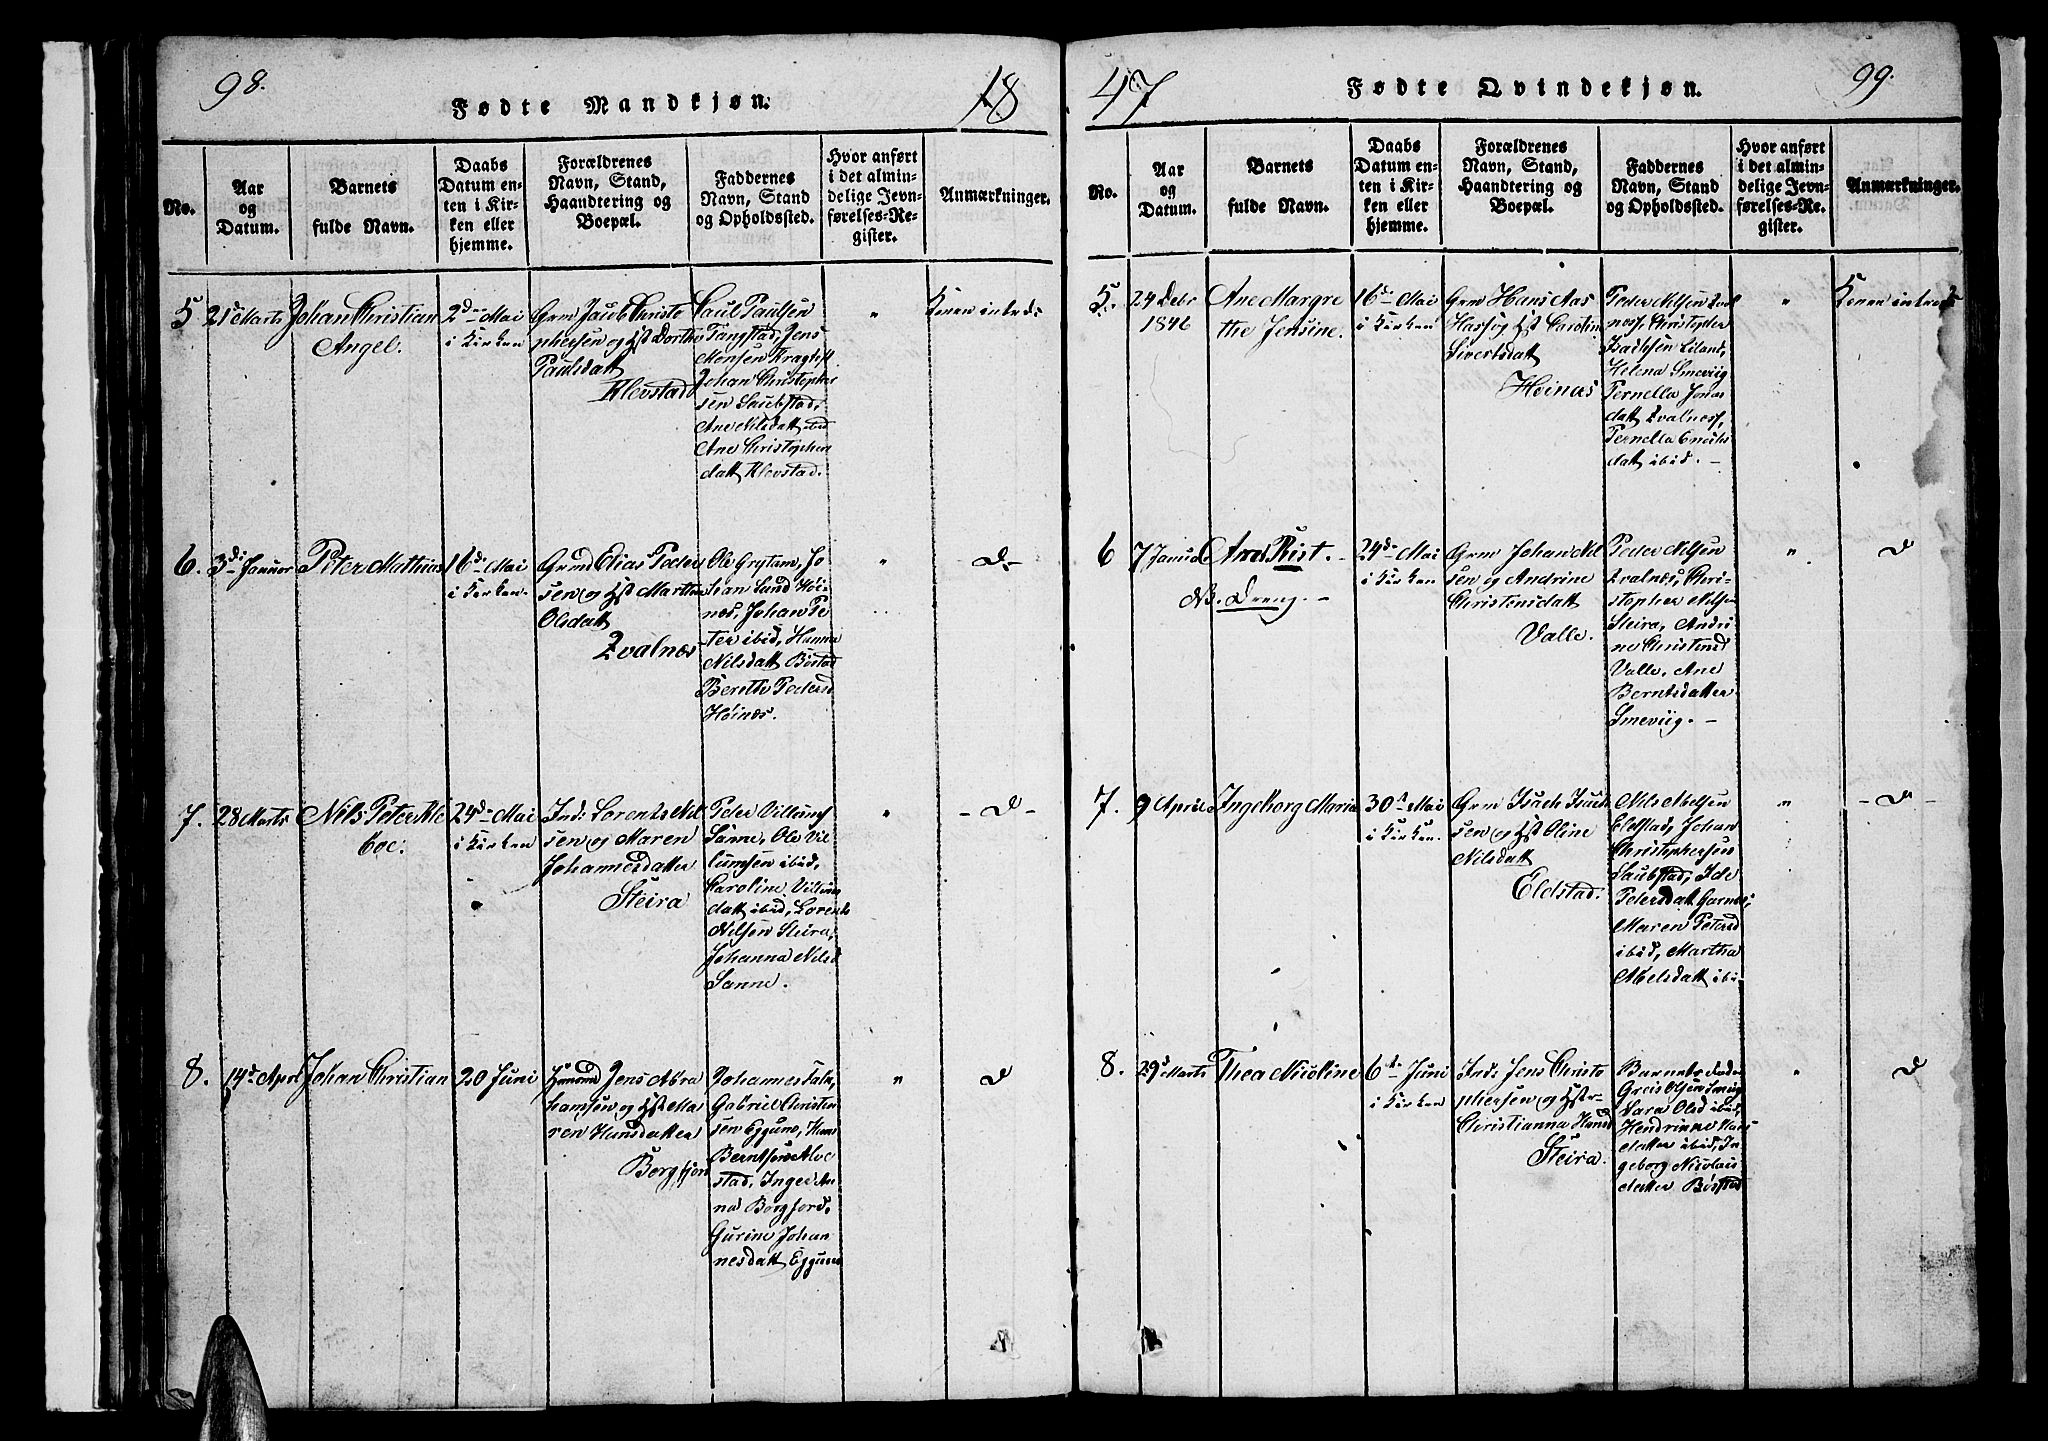 98.
Fødte Mandkjøn.
18
No.
Aar
og
Datum.
Barnets
fulde Navn.
Daabs
Datum en-
ten i Kir-
ken eller
hjemme.
Forældrenes
Navn, Stand,
Haandtering og
Boepæl.
Faddernes
Navn, Stand
og Opholdssted.
Hvor anført
i det almin-
delige Jevn-
førelses-Re-
gister.
Anmærkninger.
5
21 Marts
Johan Christian
Angel.
2de Mai
i Kirken
Grm Jacob Christo
phersen og Hst Dorthe
Paulsdatt
Klevstad
Paul Paulsen
Tangstad, Jens
Monsen
Johan Christopher
sen Laubstad,
Ane Nilsdatt ibid
Ane Christophers
datt Klevstad.
"
6.
3di Januar
Peter Mathias
16de Mai
i Kirken.
Grmd Elias Peder
sen og Hst Martha
Olsdatt
Qvalnes
Ole Grytanæ, Jo
han Lund Høi-
næs, Johan Pe
ter ibid, Hanna
Nilsdatt Bøstad
Berethe Peders
Høines.
"
D-
7.
28 Marts
Nils Peter
24de Mai
i Kirken
Ind: Lorents Nil
sen og Maren
Johannesdatter
Steira
Peder Villums
Sanne, Ole Vil
lumsen ibid,
Caroline Villum
datt ibid, Lorents
Nilsen Steira,
Johanna Nilsd
Sanne.
"
- D -
8.
14de April
Johan Christian
20 Juni
Huusmd Jens Abra
hamsen og Hst Ma
ren Hansdatter
Borgfjord
Johannes Falk,
Gabriel Christen
sen Eggum, Hans
Berntsen Alve
stad, Inger An
na Borgfjord,
Gurine Johan
nesdatt Eggum
"
D
47
Fødte Qvindekjøn.
99.
No.
Aar
og
Datum.
Barnets
fulde Navn.
Daabs
Datum en-
ten i Kir-
ken eller
hjemme.
Forældrenes
Navn, Stand,
Haandtering og
Boepæl.
Faddernes
Navn, Stand
og Opholdssted.
Hvor anført
i det almin-
delige Jevn-
førelses-Re-
gister.
Anmærkninger.
5.
24 Debr
1846
Ane Margre
the Jensine.
16de Mai
i Kirken
Grm Hans Aas
Hst Carolin
Sivertsdatt
Høinæs
Peder Nilsen Qval
næss, Christopher
Isachsen Liland,
Helena Smeviig
Pernella Jonas
datt Qvalness,
Pernella Enochs
datt ibid. -
"
6
7 Januar
Rist. -
NB. Dreng. -
24de Mai
i Kirken
Grm Johan Nil
sen og Andrine
Christensdatt
Valle.
Peder Nilsen
Qvalnæs, Chri-
stopher Nilsen
Steira, Andri-
ne Christensd
Valle, Ane
Berntsdatter
Smeviig. -
"
D
7.
9 April
Ingeborg Maria
30te Mai
i Kirken.
Grm Isach Isach
sen og Hst Oline
Nilsdatt
Eldstad.
Nils Abelsen
Eldstad, Johan
Christophersen
Laubstad, Ide
Pedersdatt
Maren Petersd
ibid, Martha
Abelsdatt ibi.
"
- D -
8.
29 Marts
Thea Nicoline
6te Juni
i Kirken
Ind: Jens Christo
phersen og Hstr
Christianna Hansd
Steira.
Barnets Fader
Greis Olsen
Sara Olsd ibid,
Hendrikke Hans
datter ibid, In
geborg Nicolai
datter Bøstad
"
D